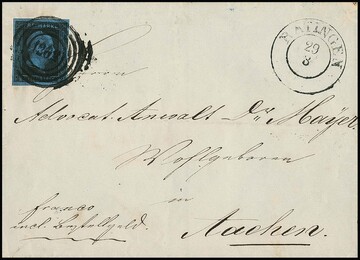 RATINGEN
29
8
Herrn
Advocat-Anwalt Dr. Mayer
Wohlgeboren
in
Aachen.
franco
incl. Bestellgeld.